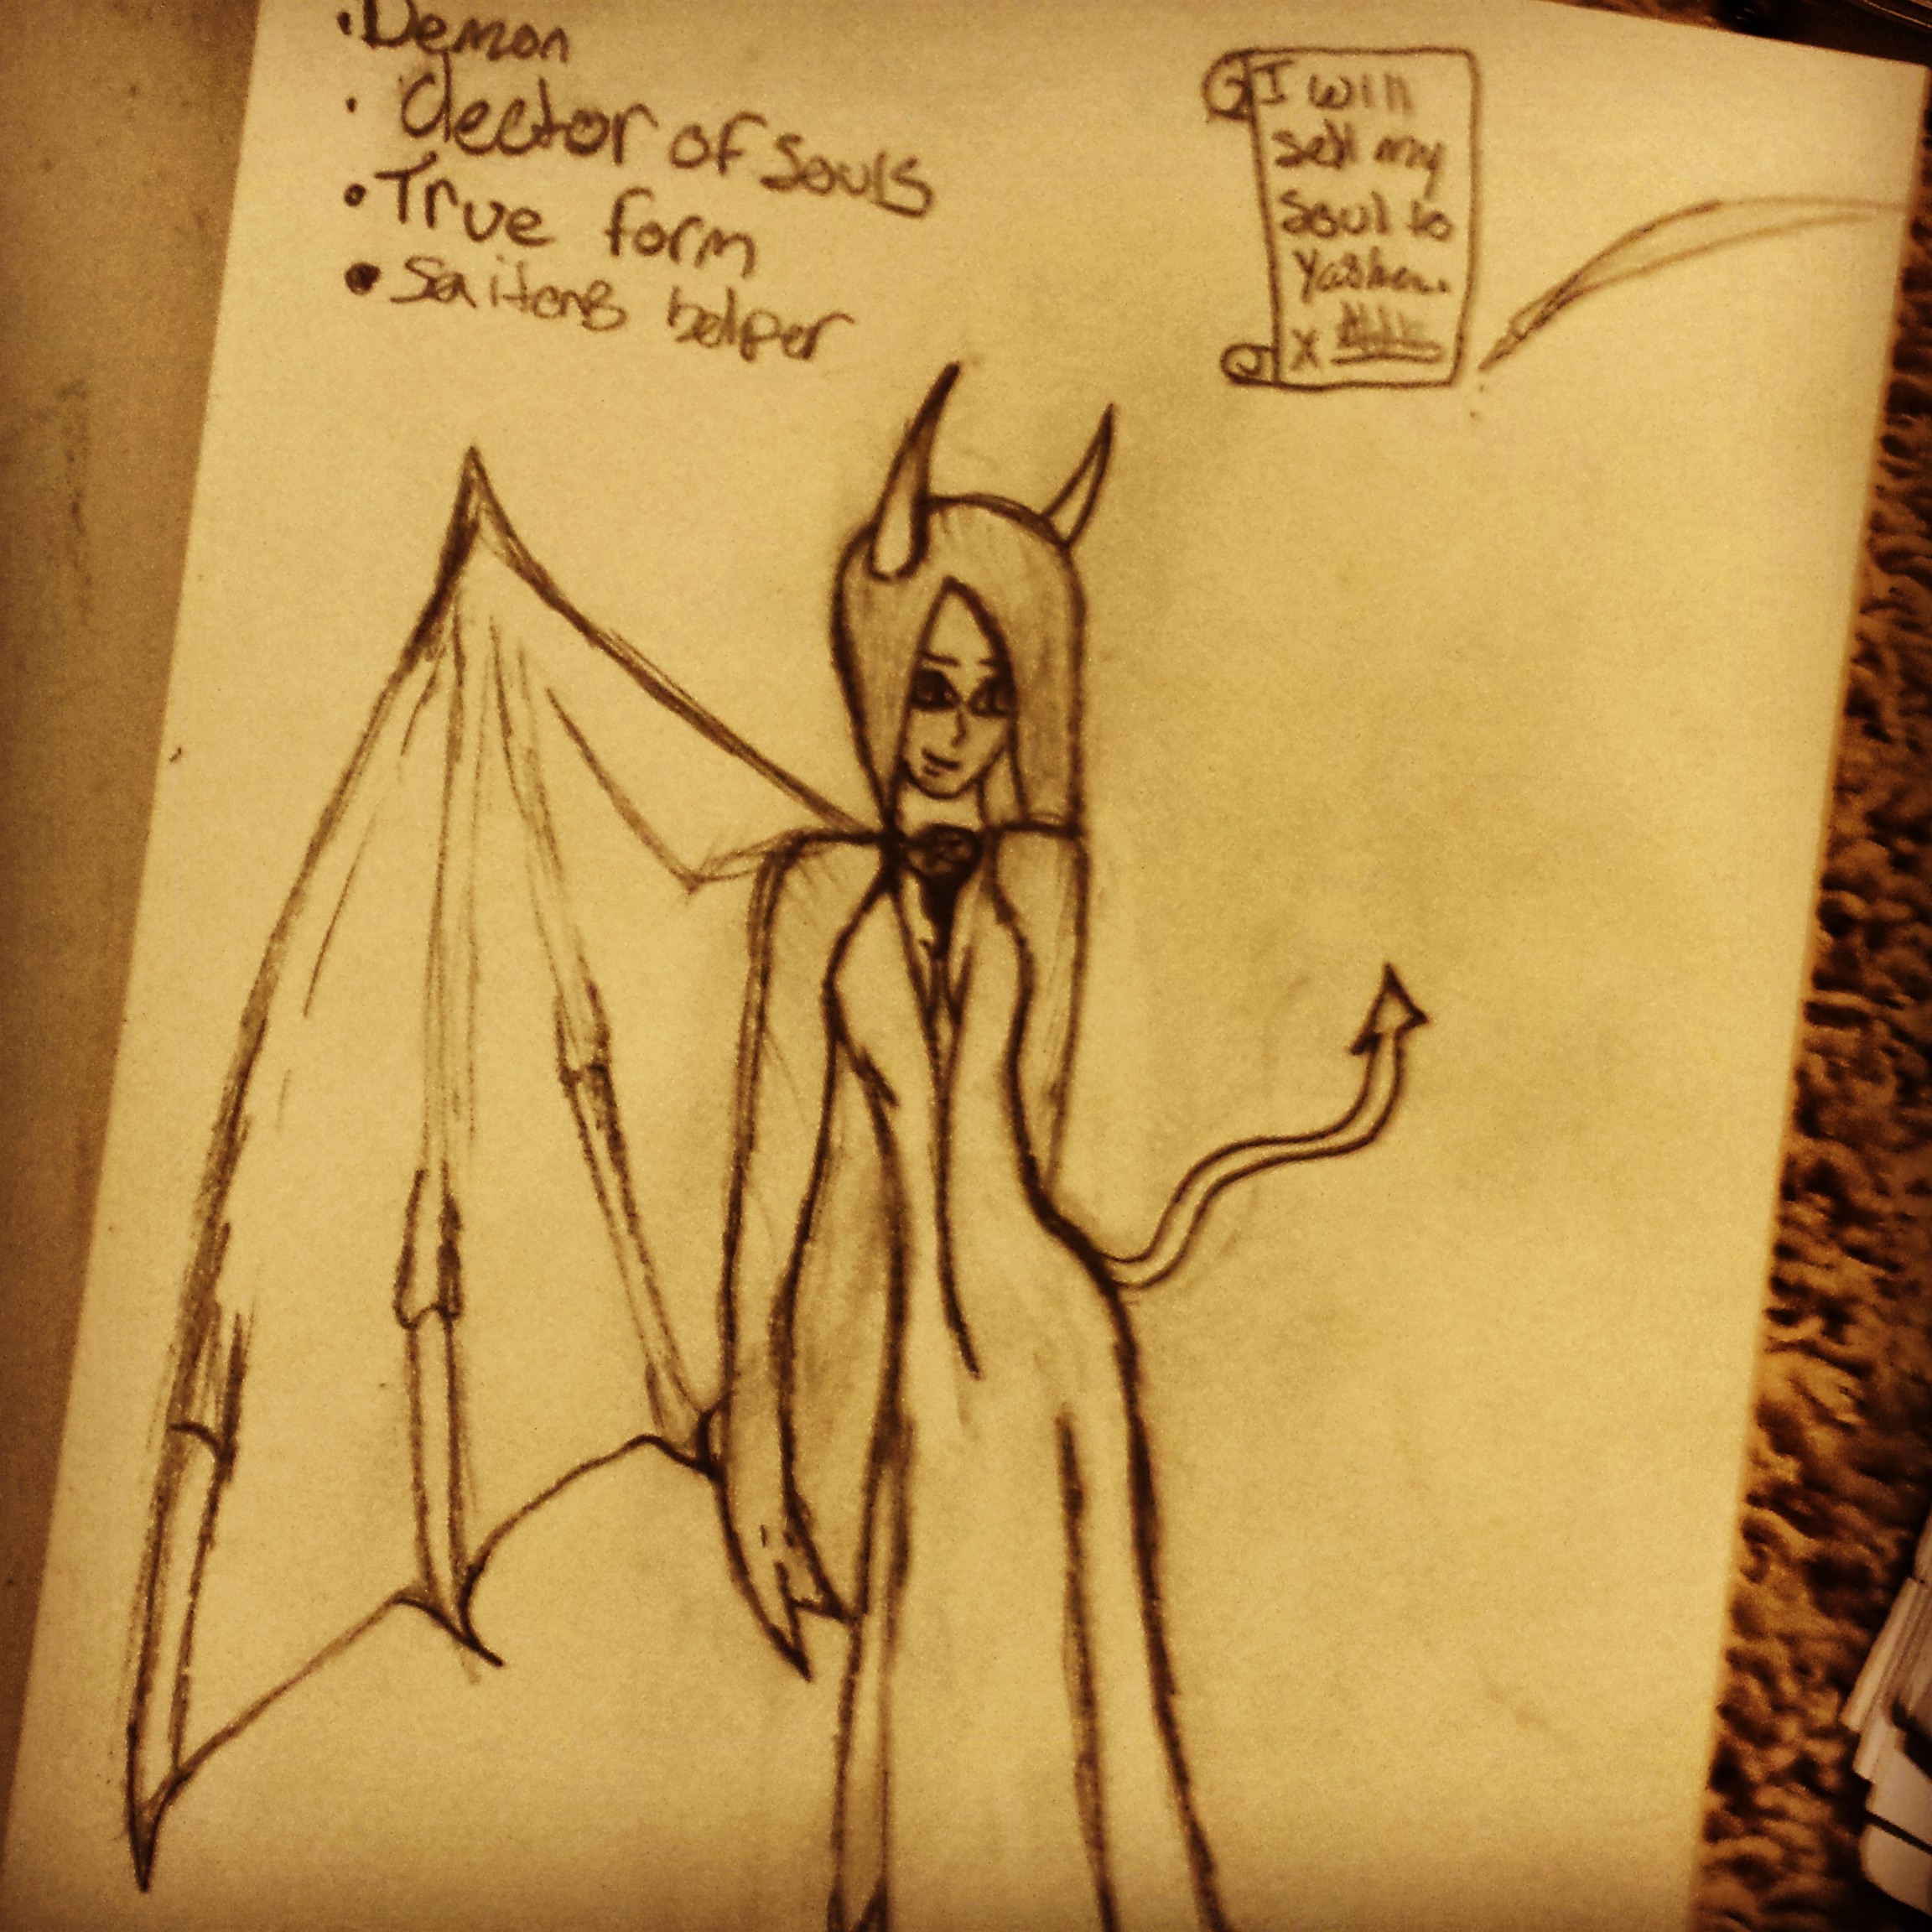 • Demon
• Clector of Souls
• True form
• Saitons helper
I will
sell my
soul to
X